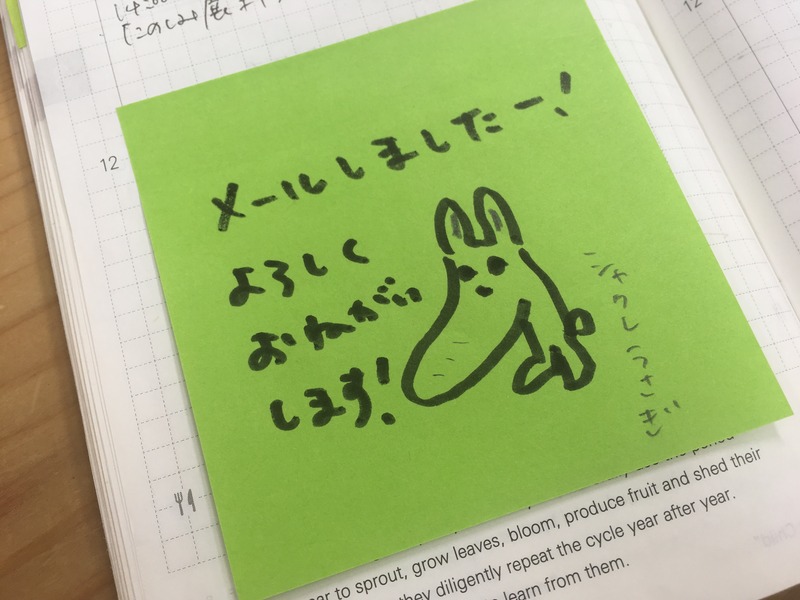 14:00
12
12
メールしましたー!
よろしく
おねがい
します!
シャクレうさぎ
the period
ar to sprout, grow leaves, bloom, produce fruit and shed their
they diligently repeat the cycle year after year.
learn from them.